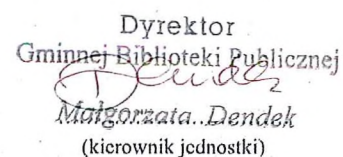 Dyrektor
Gminnej Biblioteki Publicznej
Dendek
Małgorzata Dendek
(kierownik jednostki)